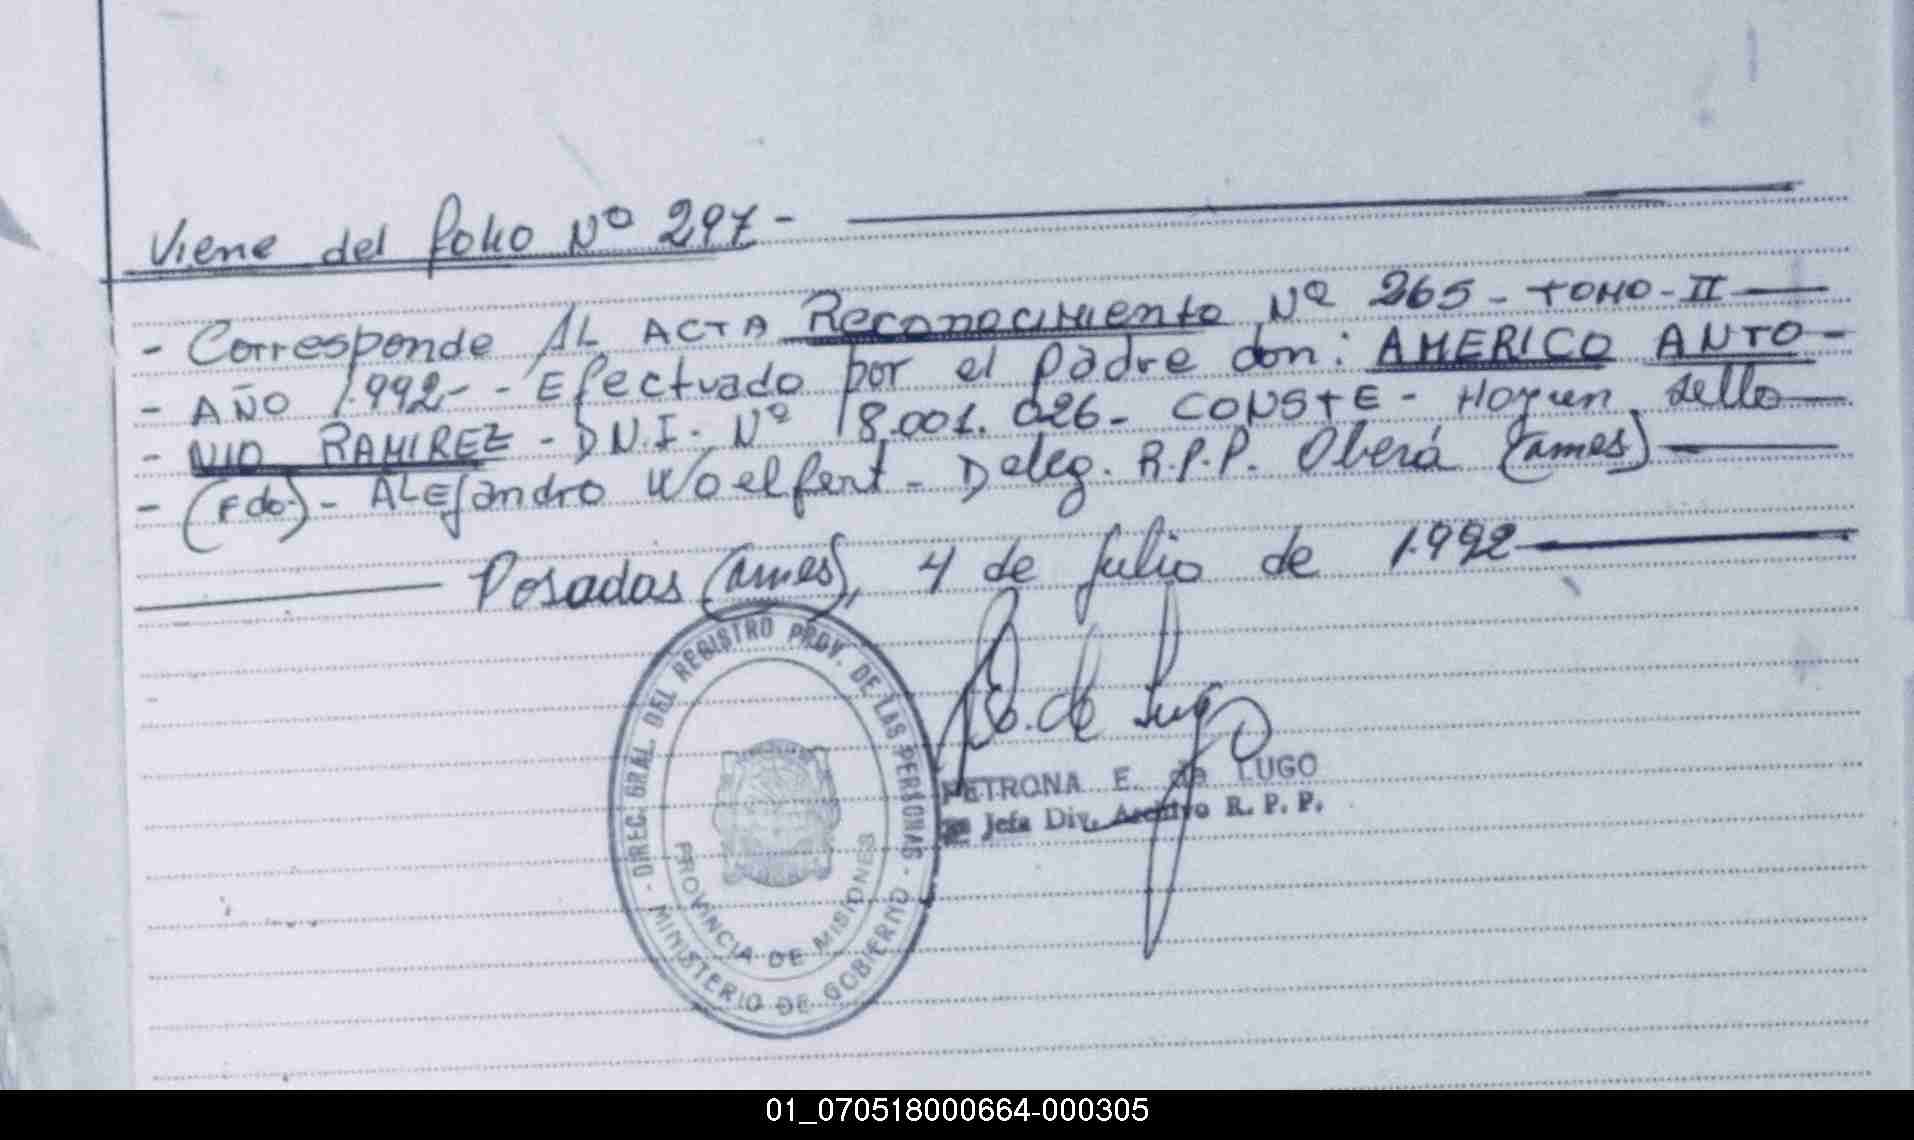 Viene del folio Nº 297-
- Corresponde AL ACTA Reconocimiento Nº 265 - TOMO - II
- AÑO 1.992- - Efectuado por el padre don: AMERICO ANTO-
- NIO RAMIREZ - D.N.I. Nº 18.001.026- CONSTE - Hay un sello
- (Fdo.) - ALEjandro Woelfert - Deleg. R.P.P. Oberá (Mnes)
Posadas (Mnes), 4 de Julio de 1.992
P. E. de Lugo
PETRONA E. de LUGO
Jefa Div. Archivo R. P. P.
- DIREC. GRAL. DEL REGISTRO PROV. DE LAS PERSONAS -
MINISTERIO DE GOBIERNO
PROVINCIA DE MISIONES
01_070518000664-000305